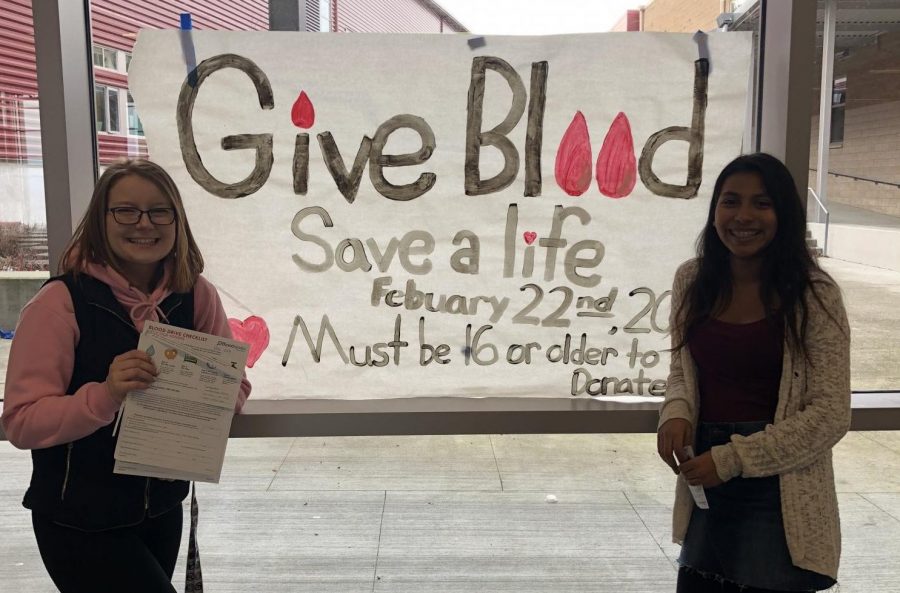 Give Blood
Save a life
Febuary 22nd, 20
Must be 16 or older to
Donate
BLOOD DRIVE CHECKLIST